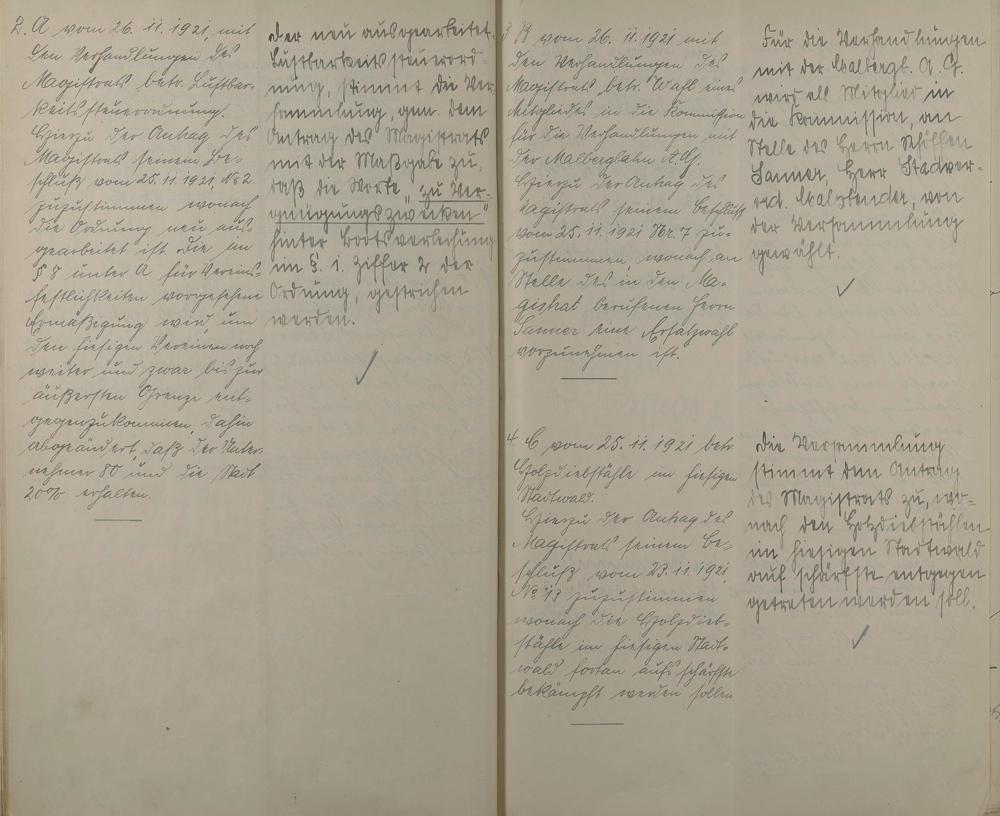 2. A vom 26. 11. 1921, mit
den Verhandlungen des
Magistrats betr. Lustbar=
keitssteuerordnung.
Hierzu der Antrag des
Magistrats seinem Be=
schluß vom 25. 11. 1921, № 2
zuzustimmen wonach
die Ordnung neu aus=
gearbeitet ist. Die im
§ 8 unter A für Vereins=
festlichkeiten vorgesehene
Ermäßigung wird, um
den hiesigen Vereinen noch
weiter und zwar bis zur
äußersten Grenze ent=
gegenzukommen, dahin
abgeändert, daß der Unter=
nehmer 80 und die Stadt
20% erhalten.
Der neu ausgearbeitet.
Lustbarkeitssteuerord=
nung, stimmt die Ver=
sammlung, gem. dem
Antrag des Magistrats
mit der Maßgabe zu,
daß die Worte "zu Ver=
gnügungszwecken"
hinter
im §. 1. Ziffer 2 der
Ordnung, gestrichen
werden.
3 B vom 26. 11. 1921 mit
den Verhandlungen des
Magistrats, betr. Wahl eines
Mitgliedes in die Kommission
für die Verhandlungen mit
der Malbergbahn A. G.
Hierzu der Antrag des
Magistrats seinem Beschluß
vom 25. 11. 1921 Nr. 7 zu=
zustimmen, wonach an
Stelle des in den Ma=
gistrat berufenen Herrn
Sanner eine Ersatzwahl
vorzunehmen ist.
4. C vom 25. 11. 1921 betr.
Holzdiebstähle im hiesigen
Stadtwald.
Hierzu der Antrag des
Magistrats seinem Be=
schluß vom 23. 11. 1921
№ 13 zuzustimmen
wonach die Holzdieb=
stähle im hiesigen Stadt=
wald fortan aufs schärfste
bekämpft werden sollen.
Für die Verhandlungen
mit der Malbergb. A. G.
wird als Mitglied in
die Kommission, an
Stelle des Herrn Schöffen
Sanner, Herr Stadtver=
ord. von
der Versammlung
gewählt.
Die Versammlung
stimmt dem Antrag
des Magistrats zu, wo=
nach den Holzdiebstählen
im hiesigen Stadtwald
auf schärfste entgegen
getreten werden soll.